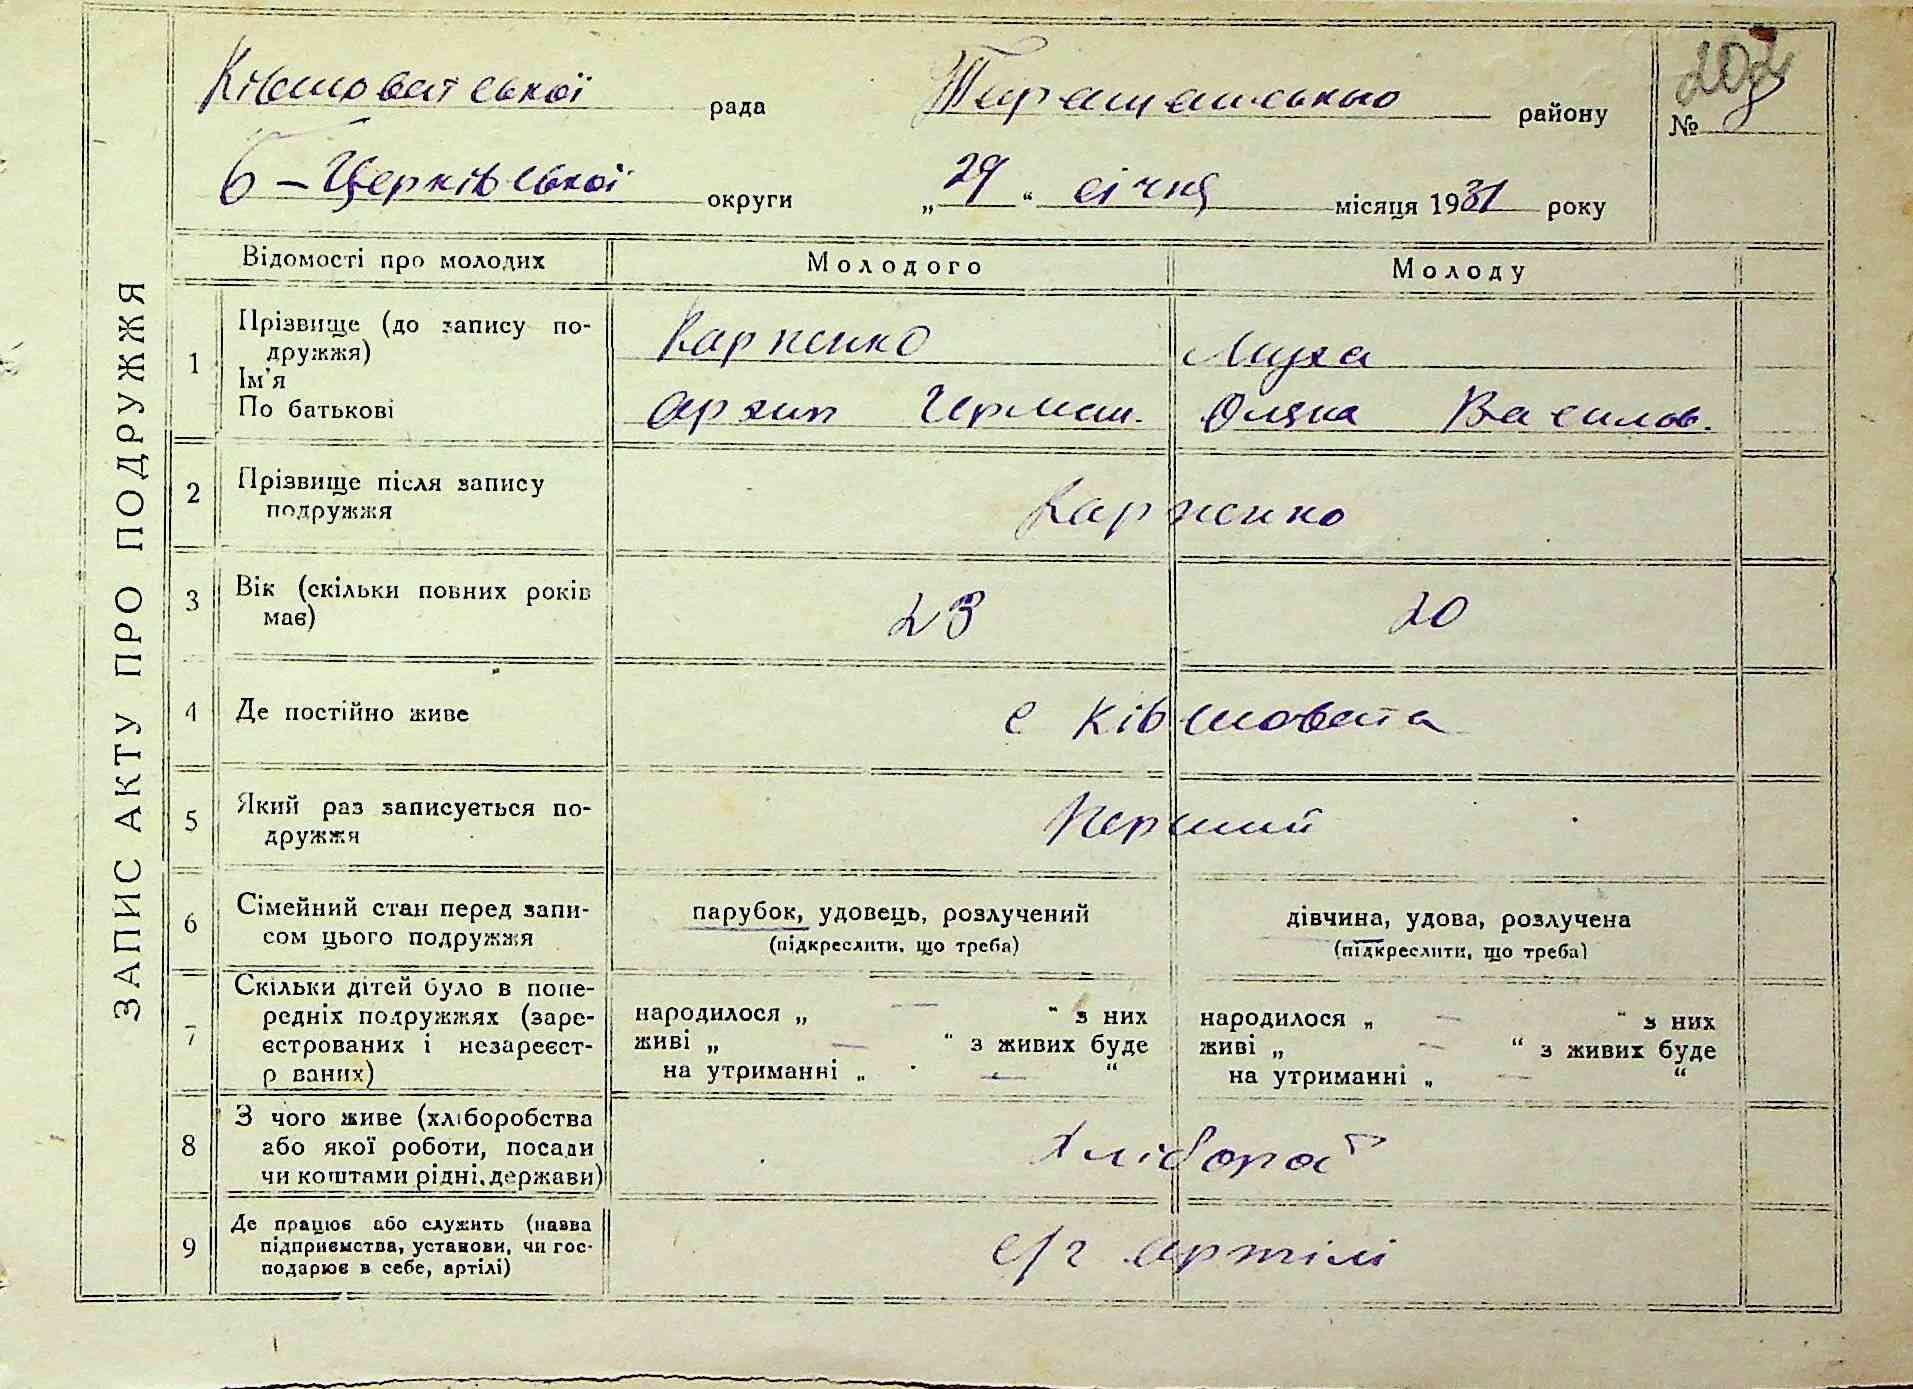 ЗАПИС АКТУ ПРО ПОДРУЖЖЯ
Ківшоватської рада Таращанського району
202
№ 8
Б-Церківської округи „ 29 “ січня місяця 1931 року
Відомості про молодих Молодого Молоду
1 Прізвище (до запису по-
дружжя) Карпенко Муха
Ім'я
По батькові Архип Герман. Оляна Василов.
2 Прізвище після запису
подружжя Карпенко
3 Вік (скільки повних років
має) 23 20
4 Де постійно живе с Ківшовата
5 Який раз записується по-
дружжя Перший
6 Сімейний стан перед запи-
сом цього подружжя
парубок, удовець, розлучений дівчина, удова, розлучена
(підкреслити, що треба) (підкреслити, що треба)
7 Скільки дітей було в попе-
редніх подружжях (заре-
єстрованих і незареєст-
р ваних)
народилося „ — “ з них народилося „ — “ з них
живі „ — “ з живих буде живі „ — “ з живих буде
на утриманні „ — “ на утриманні „ — “
8 З чого живе (хліборобства
або якої роботи, посади
чи коштами рідні, держави) хлібороб
9 Де працює або служить (назва
підприємства, установи, чи гос-
подарює в себе, артілі) с/г артілі